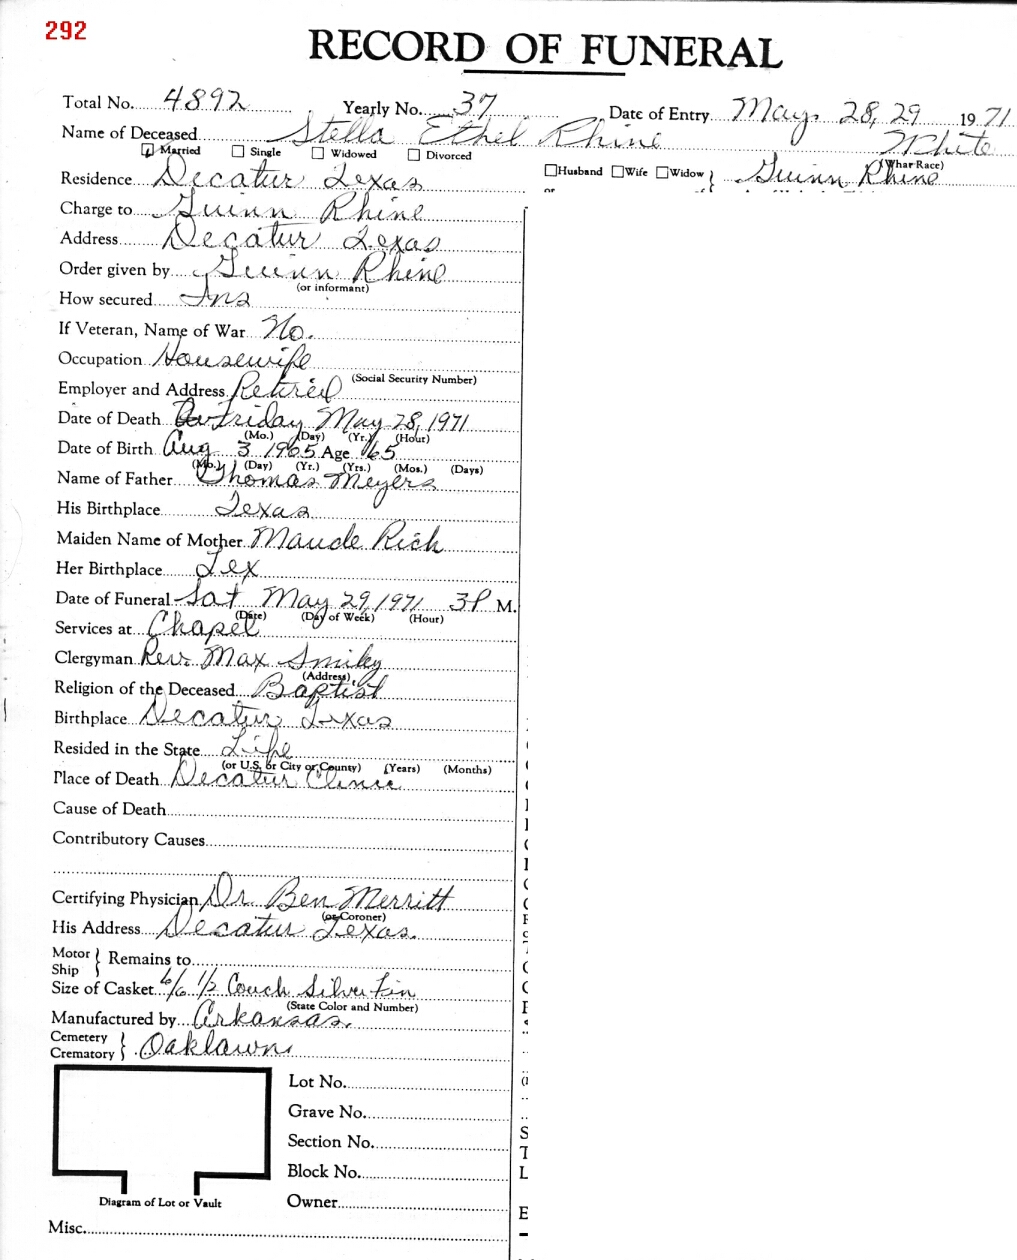 292
RECORD OF FUNERAL
Total No. 4892 Yearly No. 37 Date of Entry May 28, 29 1971
Name of Deceased Stella Ethel Rhine White
Married Single Widowed Divorced (What Race)
Residence Decatur Texas Husband Wife Widow } Guinn Rhine
or
Charge to Guinn Rhine
Address Decatur Texas
Order given by Guinn Rhine
(or informant)
How secured Ins
If Veteran, Name of War No.
Occupation Housewife
(Social Security Number)
Employer and Address Retired
Date of Death Friday May 28, 1971
(Mo.) (Day) (Yr.) (Hour)
Date of Birth Aug 3 1905 Age 65
(Mo.) (Day) (Yr.) (Yrs.) (Mos.) (Days)
Name of Father Thomas Meyers
His Birthplace Texas
Maiden Name of Mother Maude Rich
Her Birthplace Tex
Date of Funeral Sat May 29, 1971 3 P M.
(Date) (Day of Week) (Hour)
Services at Chapel
Clergyman Rev. Max Smiley
(Address)
Religion of the Deceased Baptist
Birthplace Decatur Texas
Resided in the State Life
(or U.S. or City or County) (Years) (Months)
Place of Death Decatur Clinic
Cause of Death
Contributory Causes
Certifying Physician Dr. Ben Merritt
(or Coroner)
His Address Decatur Texas.
Motor
Ship } Remains to
Size of Casket 6/6 1/2 Couch Silver Fin
(State Color and Number)
Manufactured by Arkansas.
Cemetery
Crematory } Oaklawn
Lot No.
Grave No.
Section No.
Block No.
Diagram of Lot or Vault
Owner
Misc.